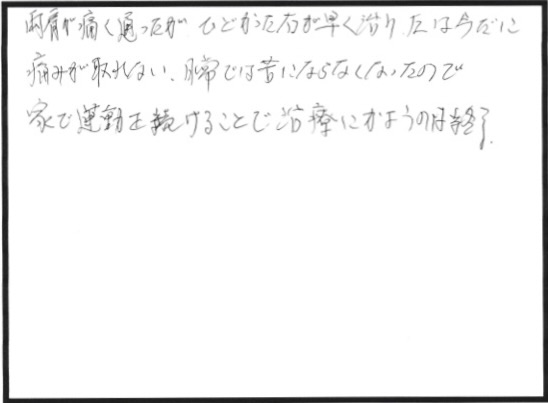 両肩が痛く通ったが ひどかった右が早く治り 左は今だに
痛みが取れない、日常では苦にならなくなったので
家で運動を続けることで治療にかようのは終了.